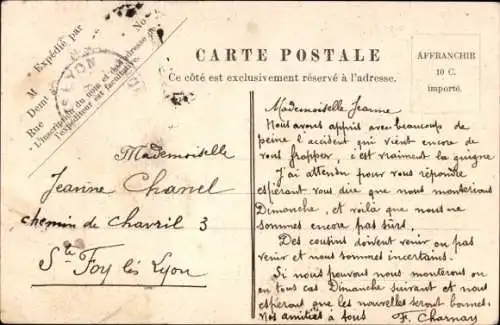 Expédié par
M
No
Demt
Rue
L'inscription du nom et de l'adresse de
l'expéditeur est facultative.
LYON
CARTE POSTALE
Ce côté est exclusivement réservé à l'adresse.
AFFRANCHIR
10 C.
importé.
Mademoiselle
Jeanne Chanel
chemin de Chavril 3
Ste Foy lès Lyon
Mademoiselle Jeanne
Nous avons appris avec beaucoup de
peine l'accident qui vient encore de
vous frapper, c'est vraiment la guigne
J'ai attendu pour vous répondre
espérant vous dire que nous monterions
Dimanche, et voilà que nous ne
sommes encore pas sûrs.
Des cousins doivent venir ou pas
venir et nous sommes incertains.
Si nous pouvons nous monterons ou
en tous cas Dimanche suivant et nous
espérons que les nouvelles seront bonnes.
Nos amitiés à tous F. Charnay